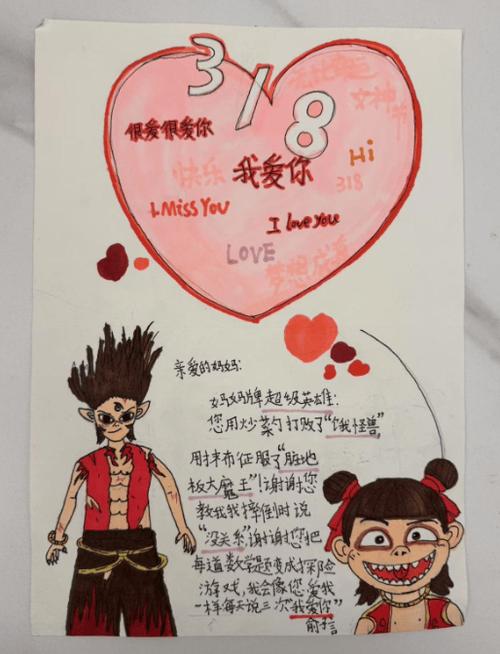 3/8
女神节
很爱很爱你
Hi
快乐
我爱你
318
I Miss You
I love you
LOVE
梦想成真
亲爱的妈妈:
妈妈牌超级英雄:
您用炒菜勺打败了“饿怪兽”,
用抹布征服了“脏地
板大魔王”!谢谢您
教我我摔倒时说
“没关系”,谢谢您把
每道数学题变成探险
游戏,我会像您爱我
一样每天说三次“我爱你”